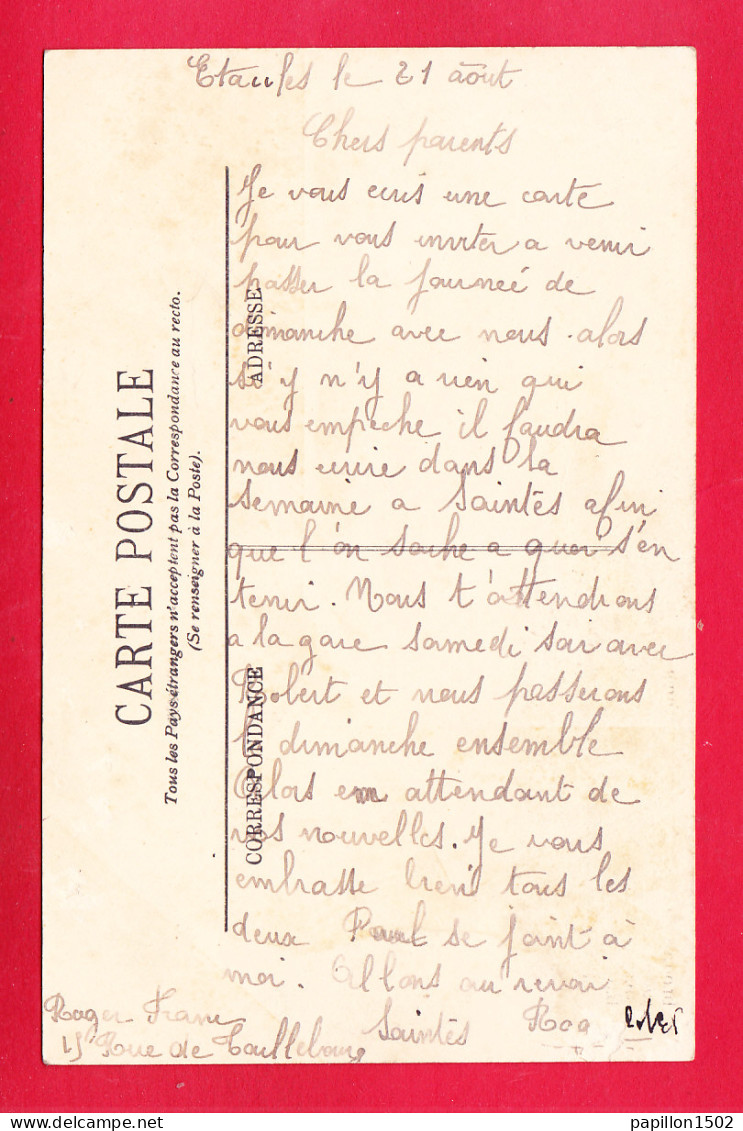 Etaules le 21 août
Chers parents
Je vous ecris une carte
pour vous inviter a venir
passer la journeé de
dimanche avec nous. alors
s'y n'y a rien qui
vous empeche il faudra
nous ecrire dans la
semaine a Saintes afin
que l'on sache a quoi s'en
tenir. Nous t'attendrons
a la gare samedi soir avec
Robert et nous passerons
le dimanche ensemble
Alors en attendant de
vos nouvelles. Je vous
embrasse bien tous les
deux Paul se joint à
moi. Allons au revoir
Roger
Rue de Taillebourg
Saintes Rog
CARTE POSTALE
Tous les Pays étrangers n'acceptent pas la Correspondance au recto.
(Se renseigner à la Poste).
CORRESPONDANCE
ADRESSE
papillon1502